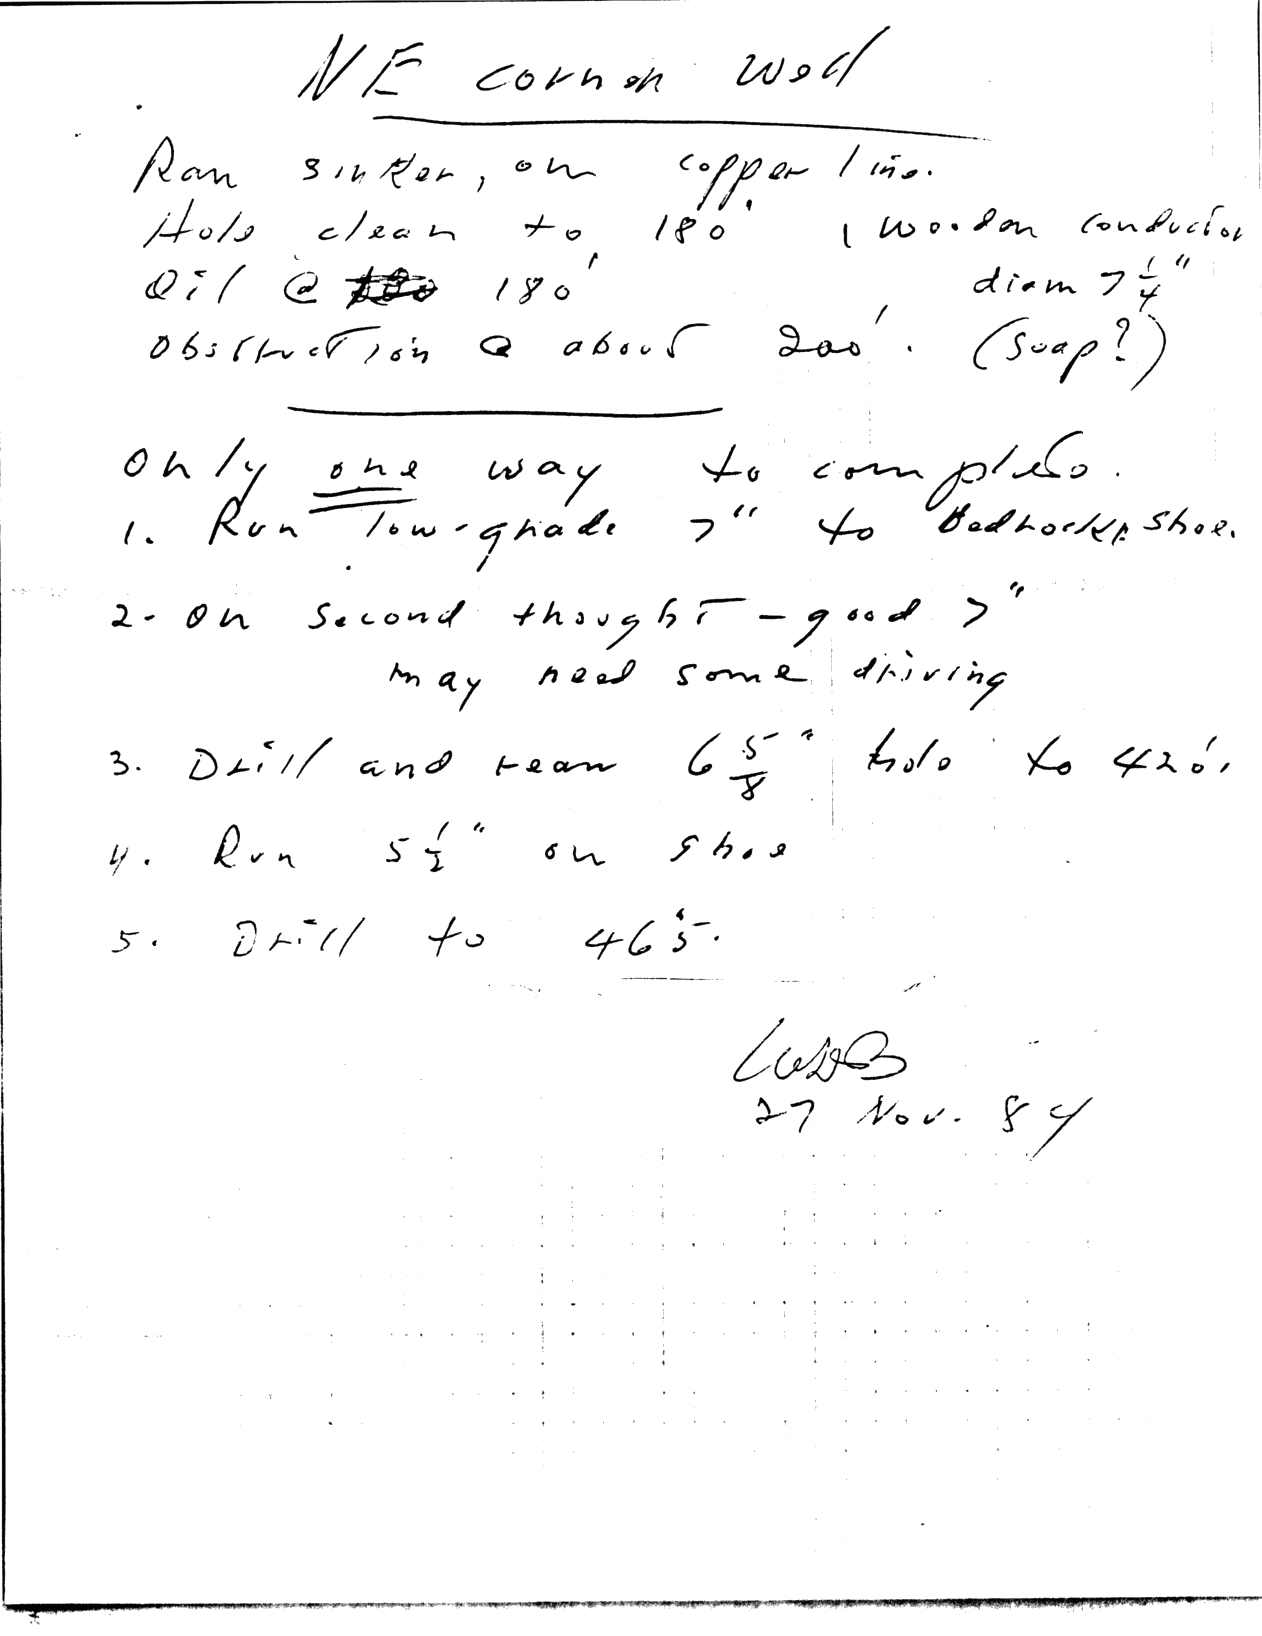 NE corner well
Ran sinker, on copper line.
Hole clean to 180', Wooden conductor
Oil @ 180' diam 7 1/4"
Obstruction @ about 200'. (Soap?)
Only one way to complete.
1. Run low-grade 7" to Bedrock, shoe.
2- On second thought - good 7"
may need some driving
3. Drill and ream 6 5/8" hole to 420'.
4. Run 5 1/2" on shoe
5. Drill to 465'.
27 Nov. 84